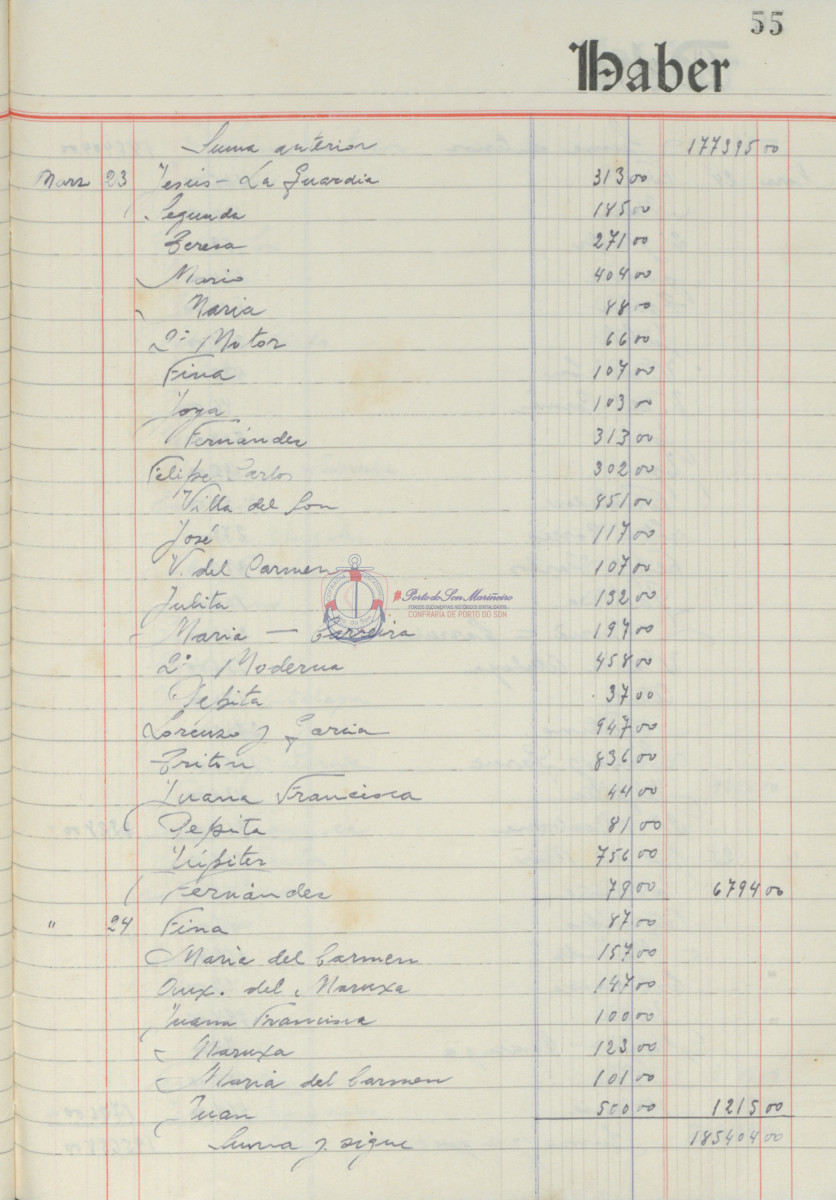 55
Haber
Suma anterior 177395 00
Marz 23 Jesús - La Guardia 313 00
Segunda 185 00
Teresa 271 00
Mario 404 00
Maria 88 00
2º Motor 66 00
Fina 107 00
Joya 103 00
Fernández 313 00
Felipe Carlos 302 00
Villa del Son 851 00
José 117 00
V. del Carmen 107 00
Julita 132 00
Maria - Carreira 197 00
2º Moderna 458 00
Pepita 37 00
Lorenzo y Garcia 947 00
Tritón 836 00
Juana Francisca 44 00
Pepita 81 00
Júpiter 756 00
Fernández 79 00 6794 00
" 24 Fina 87 00
Maria del Carmen 157 00
Aux. del Maruxa 147 00
Juana Francisca 100 00
Maruxa 123 00
Maria del Carmen 101 00
Juan 500 00 1215 00
Suma y sigue 185404 00
#Porto do Son Mariñeiro
FONDOS DOCUMENTAIS HISTÓRICOS DIXITALIZADOS
CONFRARÍA DE PORTO DO SON